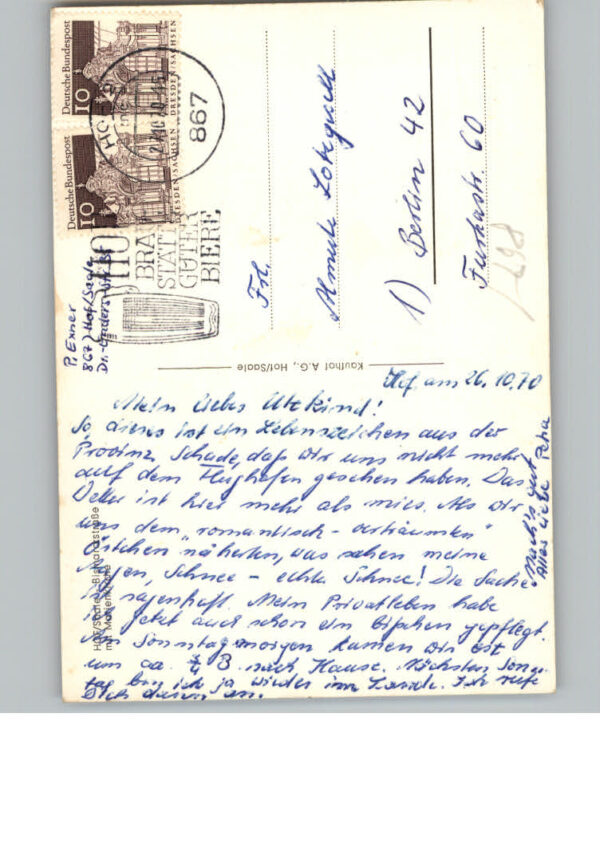 Deutsche Bundespost
10
DRESDEN/SACHSEN
Deutsche Bundespost
10
DRESDEN/SACHSEN
HOF
867
BRAU
STÄTTE
GUTER
BIERE
P. Exner
867) Hof/Saale
Frl.
1) Berlin 42
Furkastr. 60
Kaufhof A.G., Hof/Saale
HOF/Saale, Bismarckstraße
mit
Hof, am 26.10.70
Mein liebes
So dieses ist ein Lebenszeichen aus der
Provinz. Schade, daß wir uns nicht mehr
auf dem Flughafen gesehen haben. Das
ist hier mehr als mies. Als wir
uns dem „romantisch - verträumten"
Örtchen näherten, was sahen meine
Augen, Schnee - echter Schnee! Die Sache
ist sagenhaft. Mein Privatleben habe
ich jetzt auch schon ein bißchen gepflegt.
Am Sonntagmorgen kamen wir erst
um ca. nach Hause. Nächsten Sonn-
tag bin ich ja wieder im Lande. Ich rufe
Dich dann an.
Mach's gut
Alles Liebe Petra